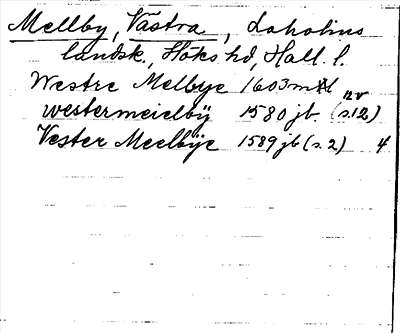 Mellby, Västra, Laholms
landsk., Höks hd, Hall. l.
Westre Melbye 1603 mtl
westermeielbÿ 1580 jb. (s.12) 12v
Vester Meelbÿe 1589 jb (s. 2) 4